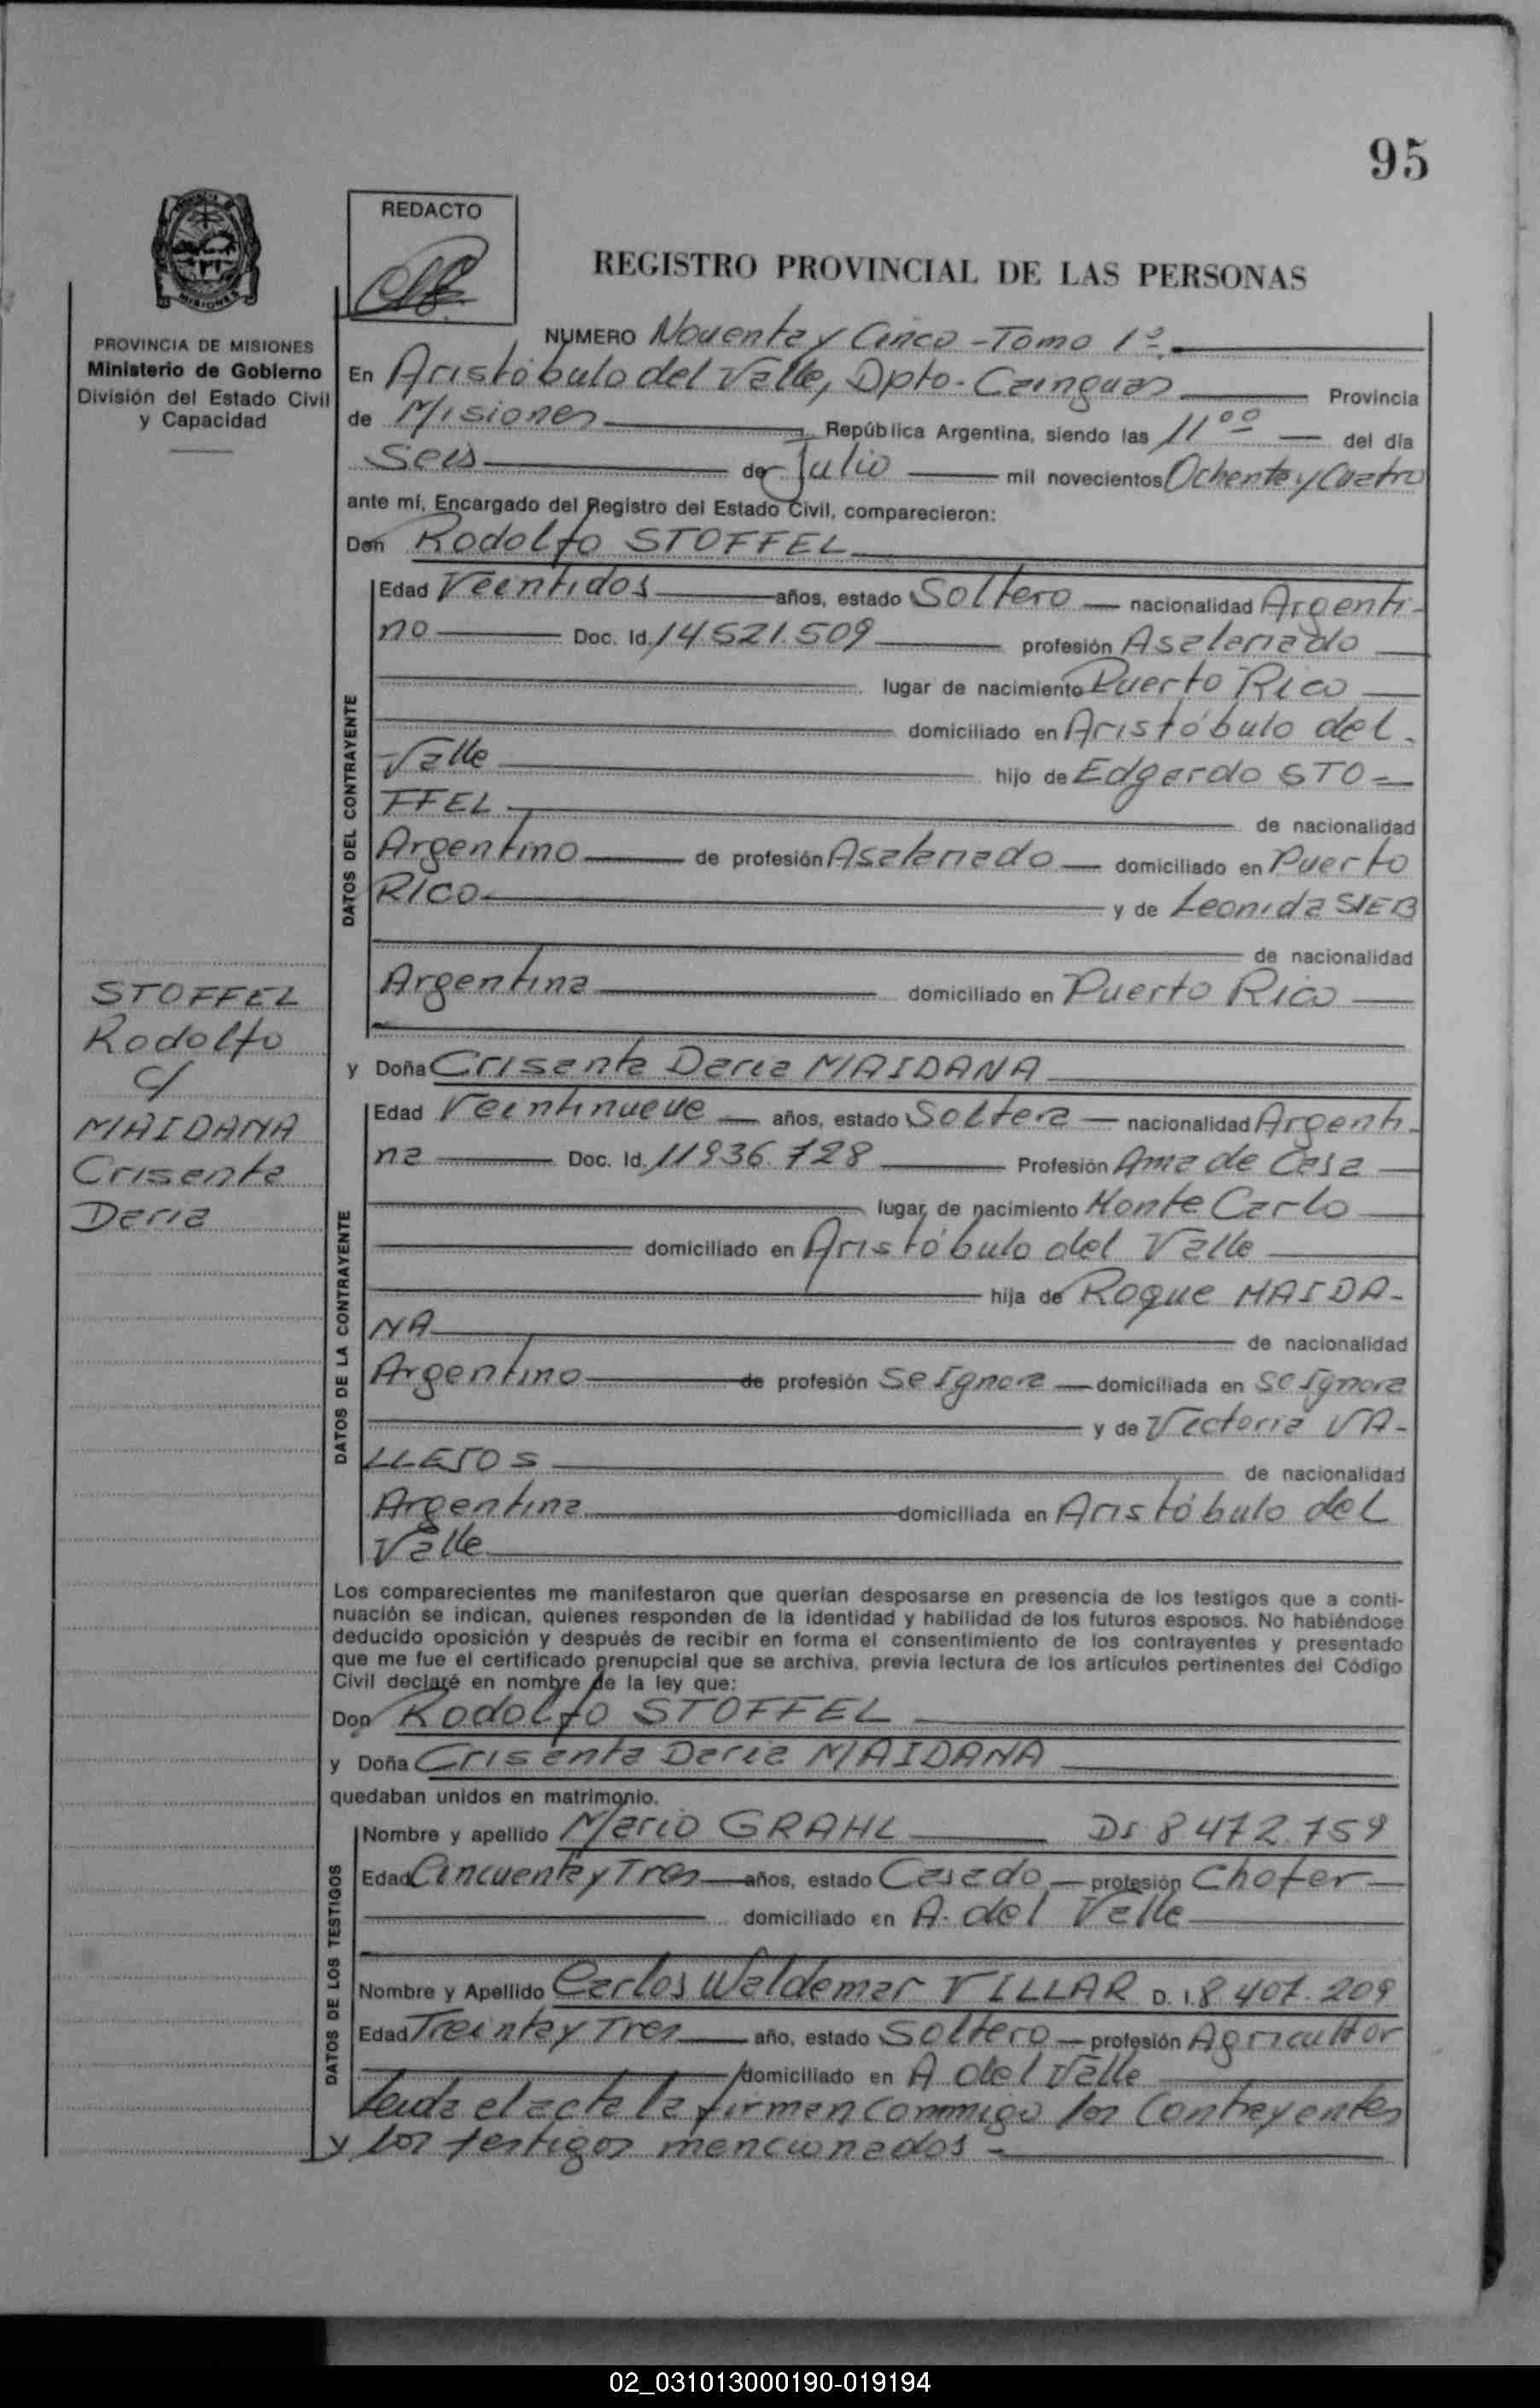 95
REDACTO
REGISTRO PROVINCIAL DE LAS PERSONAS
MISIONES
PROVINCIA DE MISIONES
Ministerio de Gobierno
División del Estado Civil
y Capacidad
NUMERO Noventa y Cinco - Tomo 1º
En Aristóbulo del Valle, Dpto. Cainguas Provincia
de Misiones República Argentina, siendo las 11ºº del día
Seis de Julio mil novecientos Ochenta y Cuatro
ante mí, Encargado del Registro del Estado Civil, comparecieron:
Don Rodolfo STOFFEL
DATOS DEL CONTRAYENTE
Edad Veintidos años, estado Soltero nacionalidad Argenti-
no Doc. Id. 14.521.509 profesión Asalariado
lugar de nacimiento Puerto Rico
domiciliado en Aristóbulo del
Valle hijo de Edgardo STO-
FFEL de nacionalidad
Argentino de profesión Asalariado domiciliado en Puerto
Rico y de Leonida SIEB
de nacionalidad
Argentina domiciliado en Puerto Rico
STOFFEL
Rodolfo
c/
MAIDANA
Crisanta
Daria
y Doña Crisanta Daria MAIDANA
DATOS DE LA CONTRAYENTE
Edad Veintinueve años, estado Soltera nacionalidad Argenti-
na Doc. Id. 11936.728 Profesión Ama de Casa
lugar de nacimiento Monte Carlo
domiciliado en Aristóbulo del Valle
hija de Roque MAIDA-
NA de nacionalidad
Argentino de profesión se Ignora domiciliada en se Ignora
y de Victoria VA-
LLEJOS de nacionalidad
Argentina domiciliada en Aristóbulo del
Valle
Los comparecientes me manifestaron que querían desposarse en presencia de los testigos que a conti-
nuación se indican, quienes responden de la identidad y habilidad de los futuros esposos. No habiéndose
deducido oposición y después de recibir en forma el consentimiento de los contrayentes y presentado
que me fue el certificado prenupcial que se archiva, previa lectura de los artículos pertinentes del Código
Civil declaré en nombre de la ley que:
Don Rodolfo STOFFEL
y Doña Crisanta Daria MAIDANA
quedaban unidos en matrimonio.
DATOS DE LOS TESTIGOS
Nombre y apellido Mario GRAHL DI 8 472.759
Edad Cincuenta y Tres años, estado Casado profesión Chofer
domiciliado en A. del Valle
Nombre y Apellido Carlos Waldemar VILLAR D. I. 8.407.209
Edad Treinta y Tres año, estado Soltero profesión Agricultor
domiciliado en A del Valle
Leida el acta la firman conmigo los Contrayentes
y los testigos mencionados
02_031013000190-019194